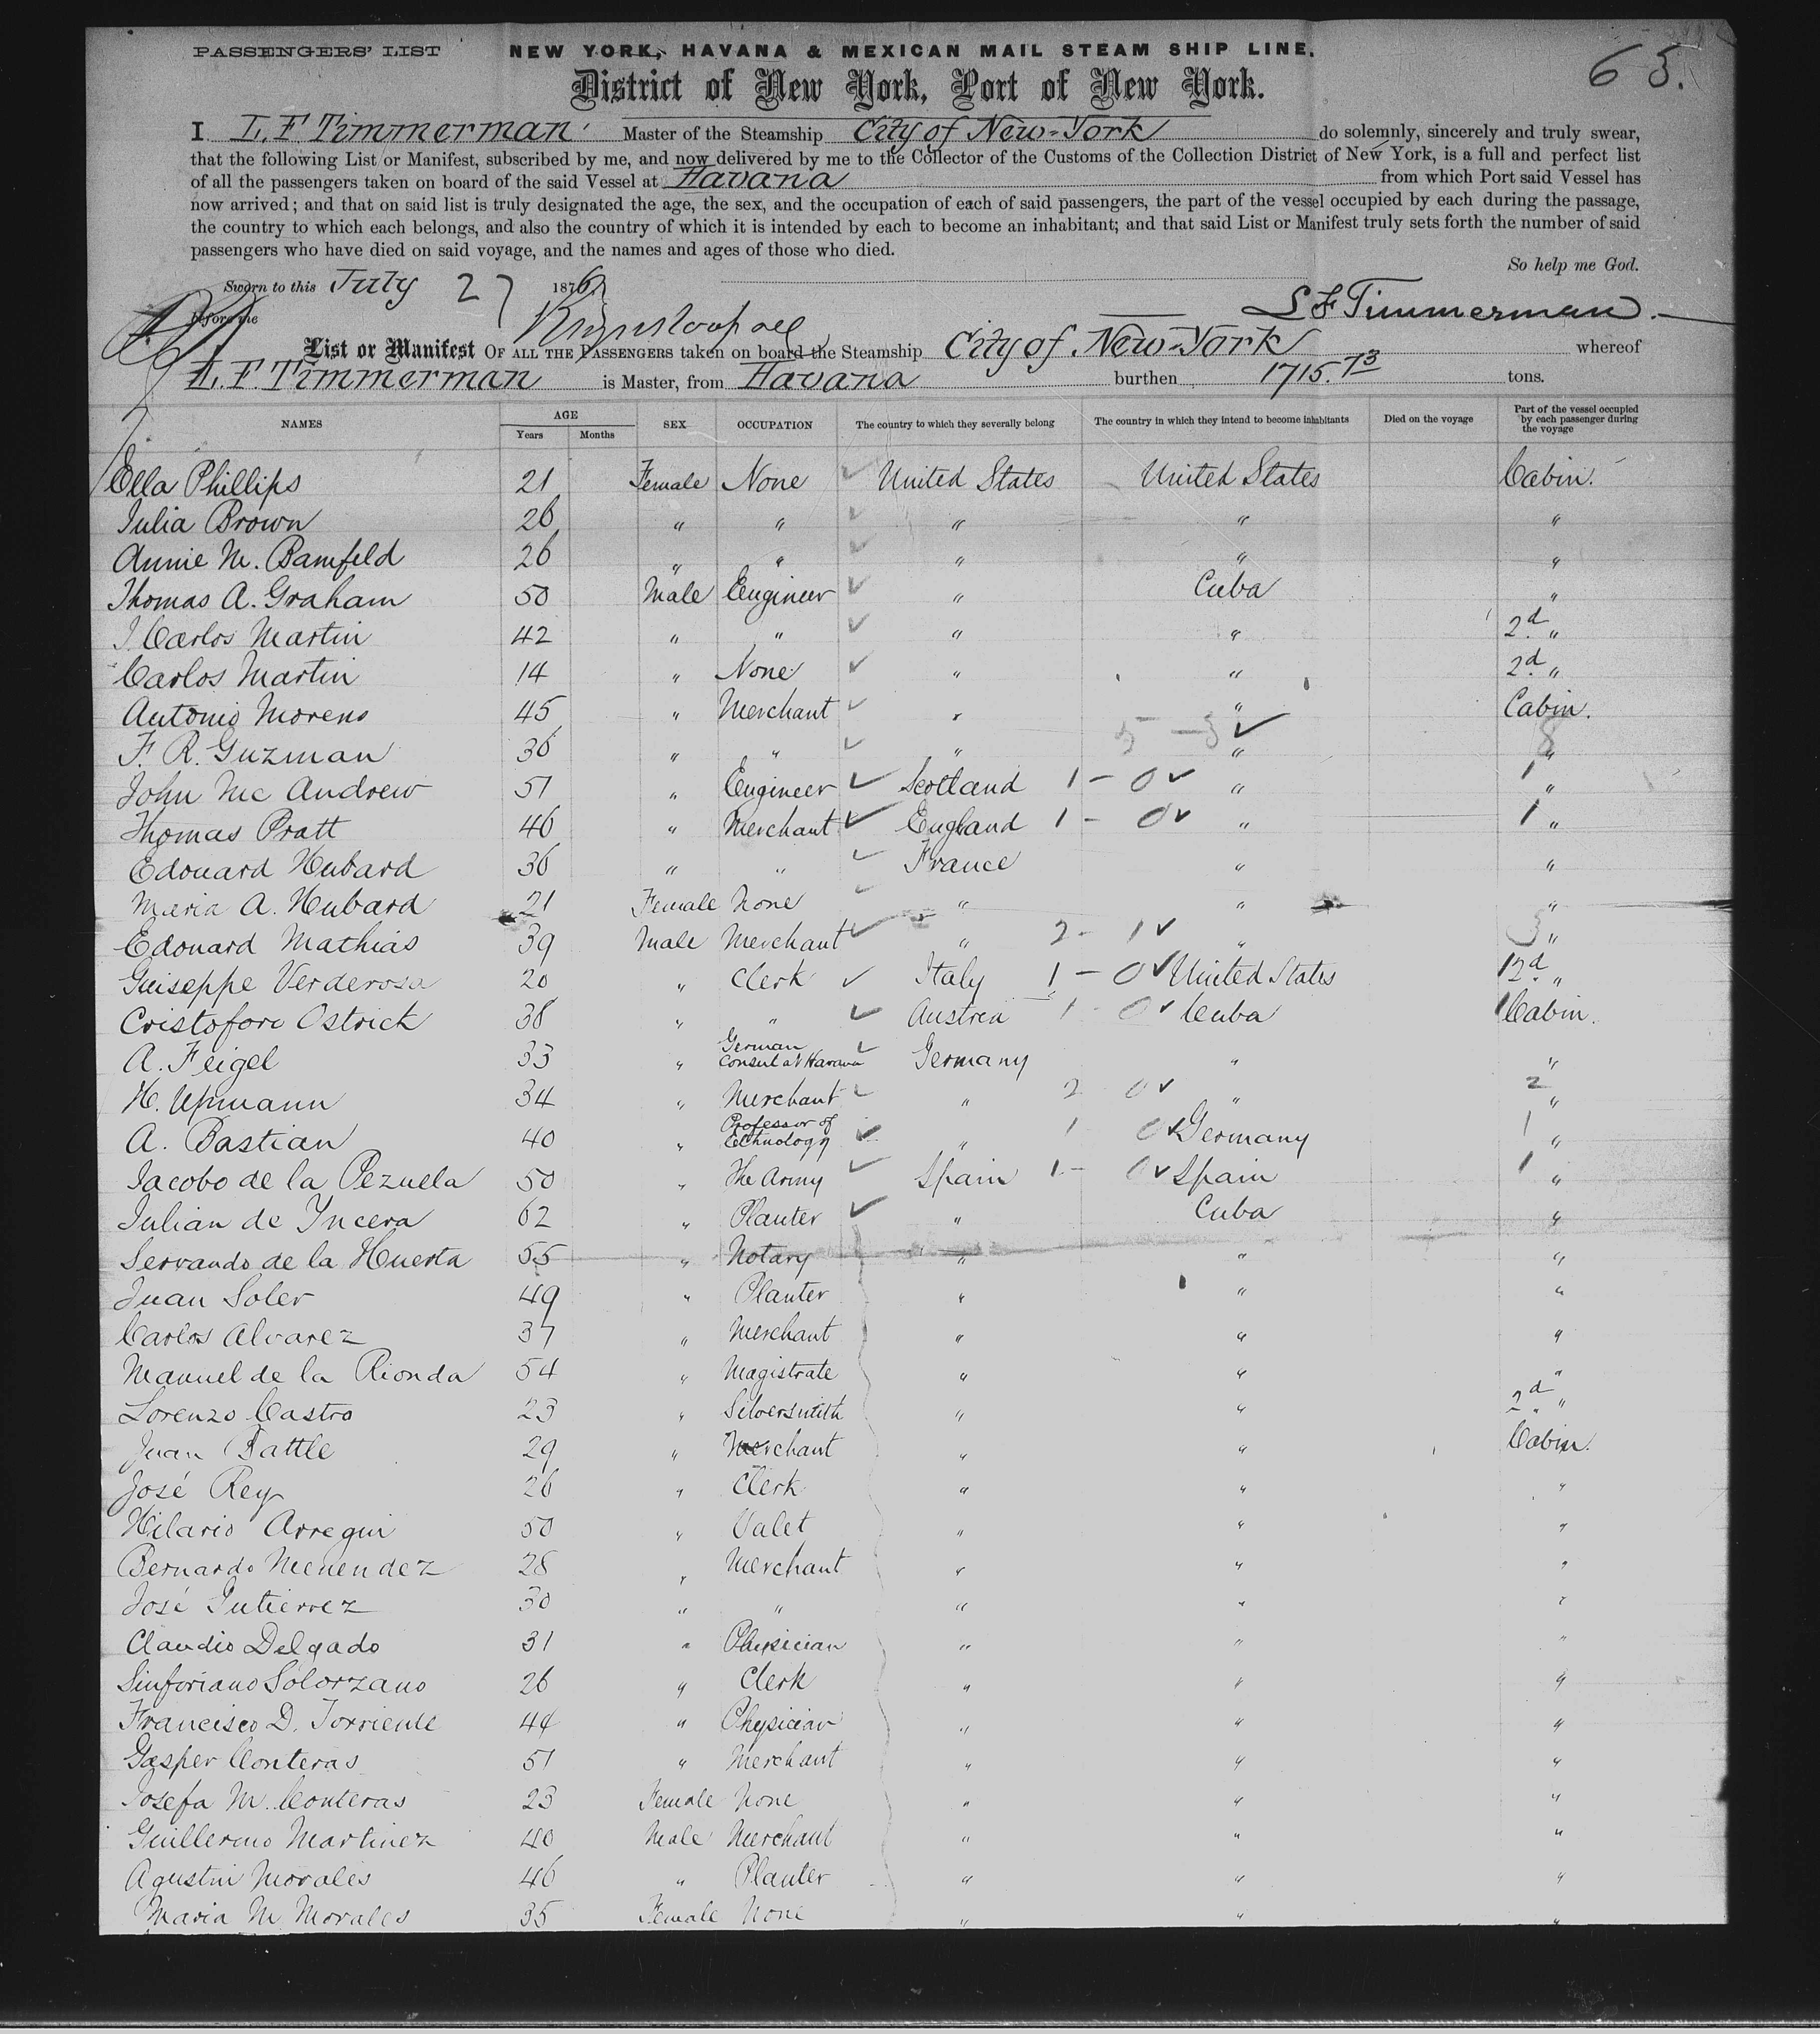 PASSENGERS' LIST NEW YORK, HAVANA & MEXICAN MAIL STEAM SHIP LINE. 65.
District of New York, Port of New York.
I L. F. Timmerman Master of the Steamship City of New-York do solemnly, sincerely and truly swear,
that the following List or Manifest, subscribed by me, and now delivered by me to the Collector of the Customs of the Collection District of New York, is a full and perfect list
of all the passengers taken on board of the said Vessel at Havana from which Port said Vessel has
now arrived; and that on said list is truly designated the age, the sex, and the occupation of each of said passengers, the part of the vessel occupied by each during the passage,
the country to which each belongs, and also the country of which it is intended by each to become an inhabitant; and that said List or Manifest truly sets forth the number of said
passengers who have died on said voyage, and the names and ages of those who died.
So help me God.
Sworn to this July 27 1876
before me L F Timmerman.
List or Manifest OF ALL THE PASSENGERS taken on board the Steamship City of New-York whereof
L. F. Timmerman is Master, from Havana burthen 1715.73 tons.
NAMES AGE Years Months SEX OCCUPATION The country to which they severally belong The country in which they intend to become inhabitants Died on the voyage Part of the vessel occupied by each passenger during the voyage
Ella Phillips 21 Female None ✓ United States United States Cabin.
Julia Brown 26 " " ✓ " " "
Annie M. Bamfeld 26 " " ✓ " " "
Thomas A. Graham 50 Male Engineer ✓ " Cuba "
J. Carlos Martin 42 " " ✓ " " 2d "
Carlos Martin 14 " None ✓ " " 2d "
Antonio Moreno 45 " Merchant ✓ " " Cabin.
F. R. Guzman 36 " " ✓ " 5 - 3 ✓ " 8 "
John Mc Andrew 51 " Engineer ✓ Scotland 1 - 0 ✓ " 1 "
Thomas Pratt 46 " Merchant ✓ England 1 - 0 ✓ " 1 "
Edouard Hubard 36 " " ✓ France " "
Maria A. Hubard 21 Female None ✓ " " "
Edouard Mathias 39 Male Merchant ✓ " 2 - 1 ✓ " 3 "
Guiseppe Verderosa 20 " Clerk ✓ Italy 1 - 0 ✓ United States 1 2d "
Cristoforo Ostrick 38 " " ✓ Austria 1 - 0 ✓ Cuba 1 Cabin.
A. Feigel 33 " German Consul at Havana ✓ Germany " "
H. Upmann 34 " Merchant ✓ " 2 0 ✓ " 2 "
A. Bastian 40 " Professor of Echnology ✓ " 1 0 ✓ Germany 1 "
Jacobo de la Pezuela 50 " The Army ✓ Spain 1 - 0 ✓ Spain 1 "
Julian de Yncera 62 " Planter ✓ " Cuba "
Servando de la Huerta 55 " Notary " " "
Juan Soler 49 " Planter " " "
Carlos Alvarez 37 " Merchant " " "
Manuel de la Rionda 54 " Magistrate " " "
Lorenzo Castro 23 " Silversmith " " 2d "
Juan Battle 29 " Merchant " " Cabin.
José Rey 26 " Clerk " " "
Hilario Arregui 50 " Valet " " "
Bernardo Menendez 28 " Merchant " " "
José Gutierrez 30 " " " " "
Claudio Delgado 31 " Physician " " "
Sinforiano Solorzano 26 " Clerk " " "
Francisco D. Torriente 44 " Physician " " "
Gasper Conteras 51 " Merchant " " "
Josefa M. Conteras 23 Female None " " "
Guillermo Martinez 40 Male Merchant " " "
Agustin Morales 46 " Planter " " "
Maria M. Morales 35 Female None " " "